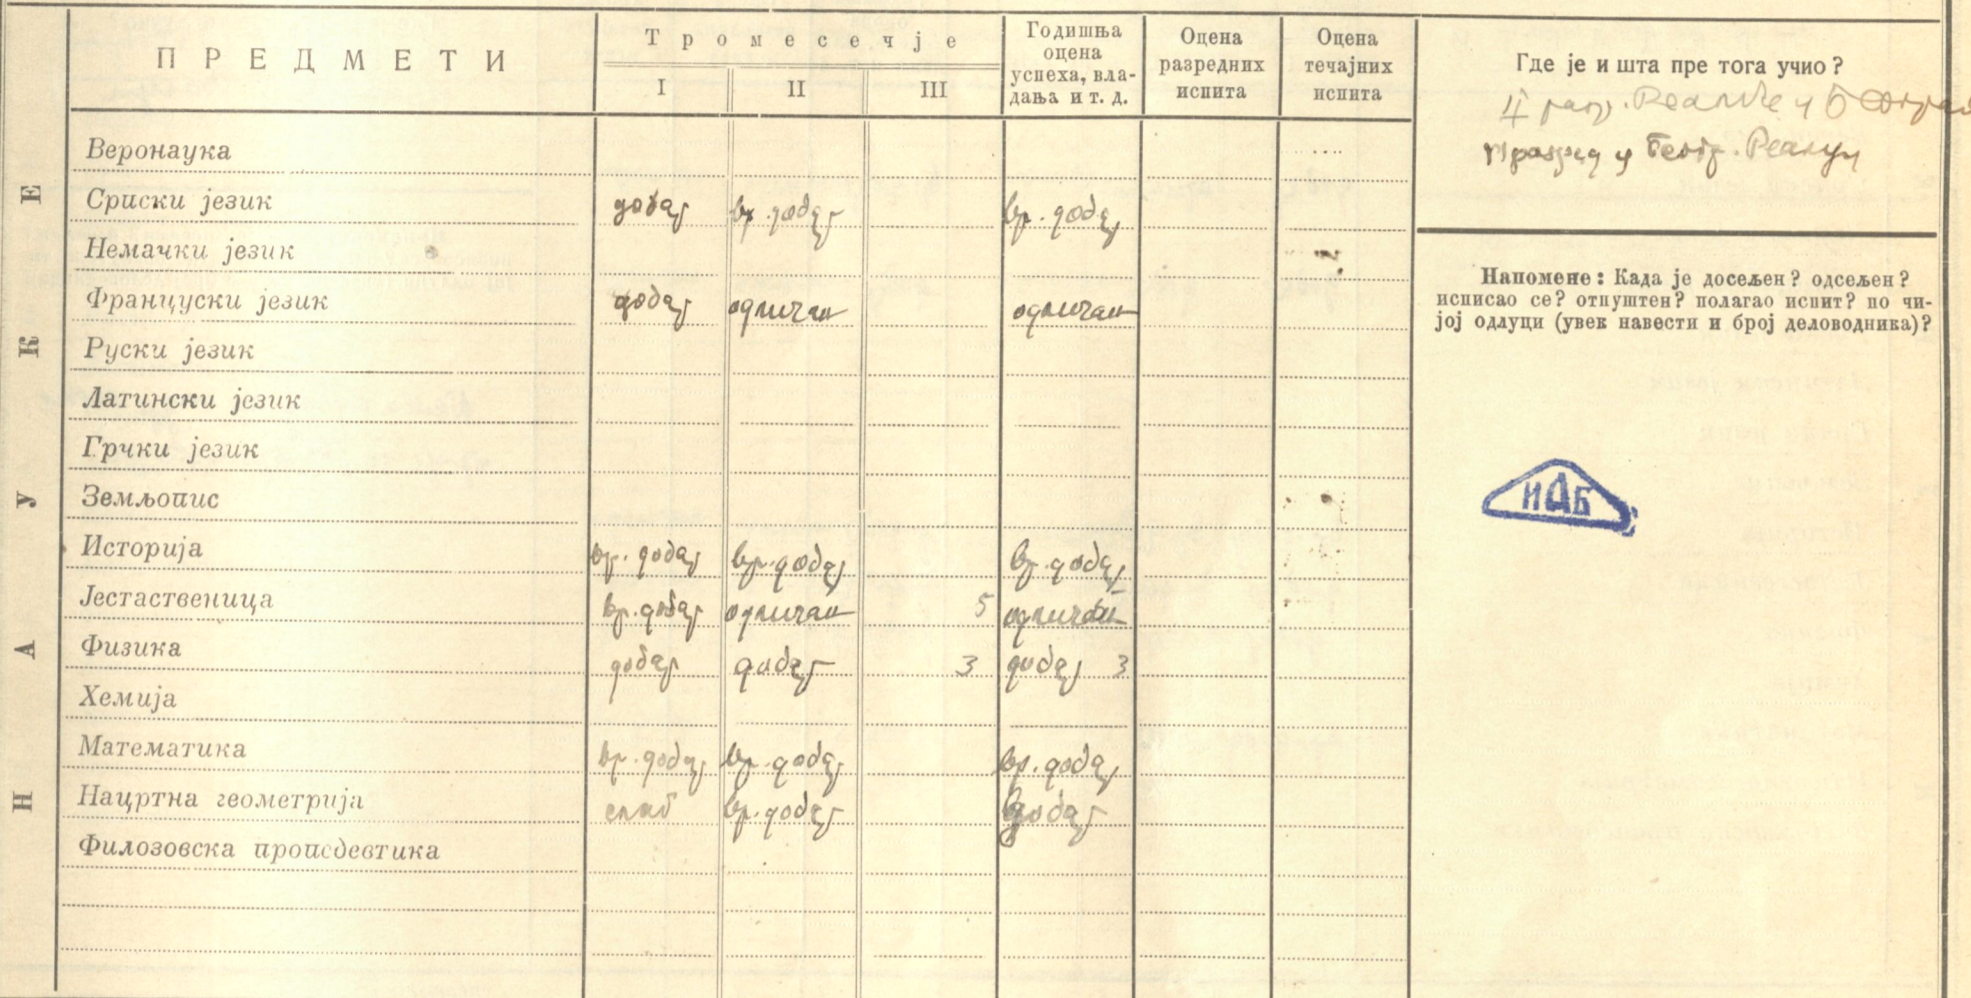 ПРЕДМЕТИ
Тромесечје
I II III
Годишња оцена успеха, вла-дања и т. д.
Оцена разредних испита
Оцена течајних испита
НАУКЕ
Веронаука
Српски језик добар вр. добар вр. добар
Немачки језик
Француски језик добар одличан одличан
Руски језик
Латински језик
Грчки језик
Земљопис
Историја вр. добар вр. добар вр. добар
Јестаственица вр. добар одличан 5 одличан
Физика добар добар 3 добар 3
Хемија
Математика вр. добар вр. добар вр. добар
Нацртна геометрија слаб вр. добар добар
Филозовска пропедевтика
Где је и шта пре тога учио?
II разр. Реалке у
разред у Београ. Реалци
Напомене: Када је досељен? одсељен?
исписао се? отпуштен? полагао испит? по чи-
јој одлуци (увек навести и број деловодника)?
ИАБ